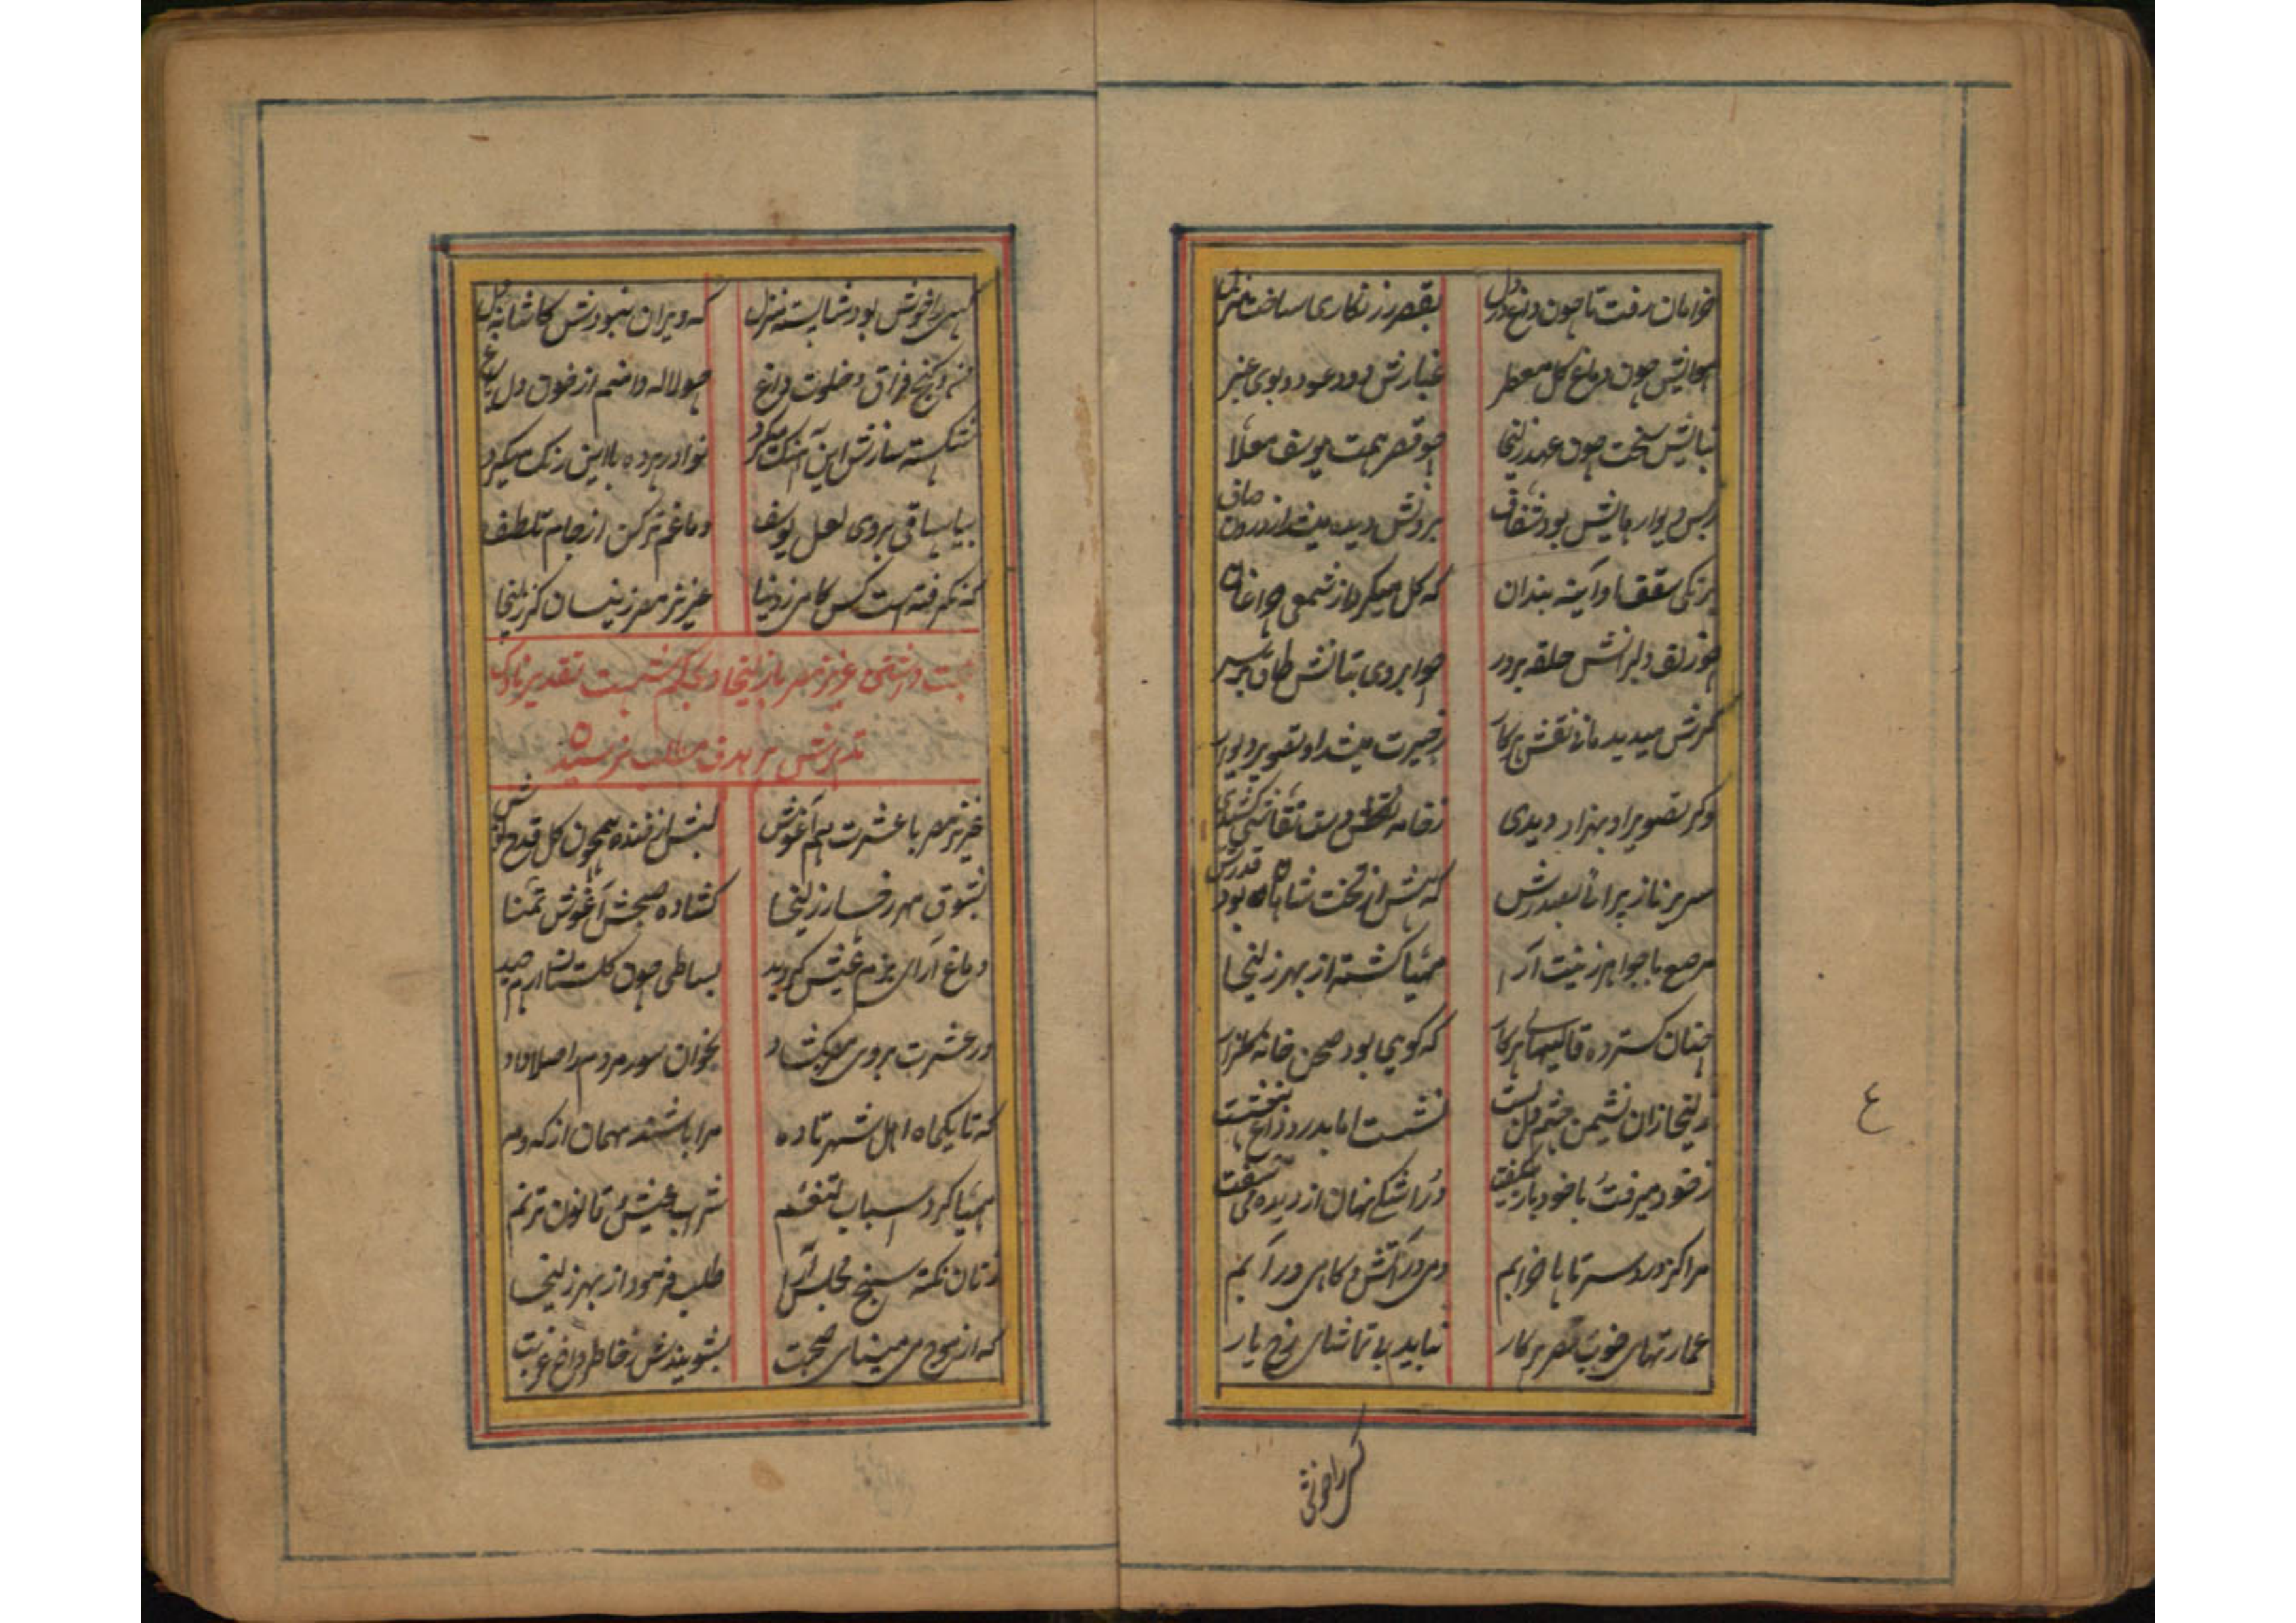 خرامان رفت تا چون داغ در دل بقصر زرنگاری ساخت منزل
هوایش چون دماغ گل معطر غبارش دود عود و بوی عنبر
بنایش سخت چون عهد زلیخا چو قصر همت یوسف معلا
ز بس دیوار هایش بود شفاف برونش دیده میشد از درون صاف
برنگی سقفها و آینه بندان که گل میکرد از شمعی چراغان
چو زلف دلبرانش حلقه بر در چو ابروی بتانش طاق بر سر
گرش میدید مانی نقش پرکار ز حیرت میشد او تصویر دیوار
وگر تصویر او بهزاد دیدی ز خامه دست نقاشی کشیدی
سریر ناز پیرائی بصدرش که بیش از تخت شاهان بود قدرش
مرصع با جواهر زینت آرا مهیا گشته از بهر زلیخا
چنان گسترده قالیهای پرکار که گویی بود صحن خانه گلزار
زلیخا زان نشیمن چشم دل بست نشست اما بدرد و داغ بنشست
ز خود میرفت و با خود باز میگفت در اشکی نهان از دیده می سفت
مرا کز درد سر تا پا خرابم دمی در آتش و گاهی در آبم
عمارتهای خوب و قصر پرکار نباید بی تماشای رخ یار
کسی را خوش
کسی را خوش بود شایسته منزل که ویران نبودش کاشانه دل
من و کنج فراق و خلوت داغ چو لاله دامنم از خون دل باغ
شکسته سازش این آهنگ میکرد نوا در پرده با این رنگ میکرد
بیا ساقی بروی لعل یوسف دماغم تر کن از جام تلطف
که نگرفته است کس کامی ز دنیا عزیز مصر زینسان کز زلیخا
داشتن عزیز مصر با زلیخا و بحکم تقدیر ناوک
تدبیرش بر هدف مطلب نرسیدن
عزیز مصر با عشرت هم آغوش لبش از خنده همچون گل قدح نوش
بشوق مهر رخسار زلیخا گشاده صبحش آغوش تمنا
دماغ آرای بزم عیش گردید بساطی چون گلستان ارم چید
در عشرت بروی مصر بگشاد بخوان سور مردم را صلا داد
که تا یکماه اهل شهر تا ده مرا باشند مهمان از که و مه
مهیا کرد اسباب تنعم شراب عیش و قانون ترنم
زنان نکته سنج مجلس آرا طلب فرمود از بهر زلیخا
که از موج می مینای صحبت بشویندش ز خاطر داغ غربت
٤